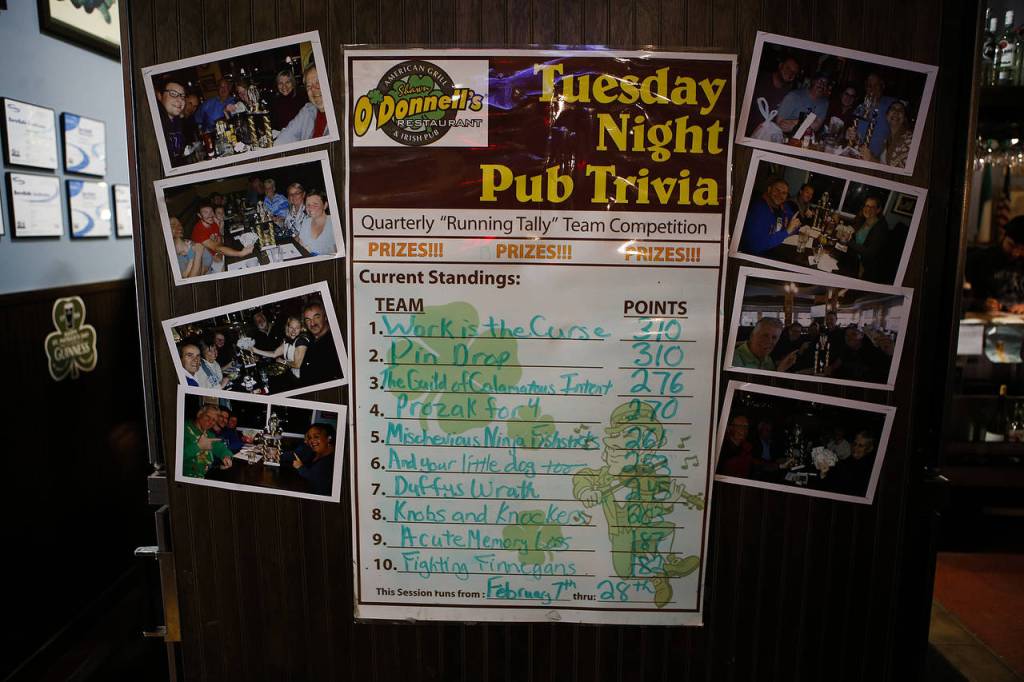 AMERICAN GRILL
Shawn
O'Donnell's
RESTAURANT
& IRISH PUB
Tuesday
Night
Pub Trivia
Quarterly "Running Tally" Team Competition
PRIZES!!! PRIZES!!! PRIZES!!!
Current Standings:
TEAM POINTS
1. Work is the Curse 310
2. Pin Drop 310
3. The Guild of Calamatous Intent 276
4. Prozak for 4 270
5. Mischevious Ninja Fishsticks
6. And your little dog too
7. Duffys Wrath 245
8. Knobs and Knockers
9. Acute Memory Loss 187
10. Fighting Finnegans
This Session runs from: February 7th thru: 28th
GUINNESS